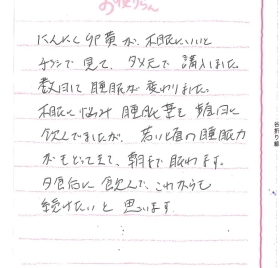 お便りらん
にんにく卵黄が、不眠にいいと
チラシで見て、ダメ元で購入しました。
数日で睡眠が変わりました。
不眠に悩み睡眠薬を毎日
飲んでましたが、若い頃の睡眠力
がもどってきて、朝まで眠れます。
夕食后に飲んで、これからも
続けたいと思います。